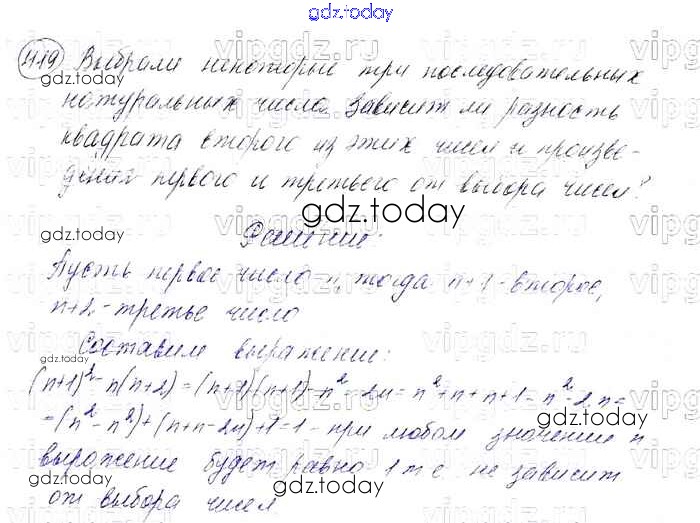 gdz.today
419 Выбрали некоторые три последовательных
натуральных числа. Зависит ли разность
квадрата второго из этих чисел и произве-
дения первого и третьего от выбора чисел?
Решение:
Пусть первое число n, тогда n+1 - второе,
n+2 - третье число
Составим выражение:
(n+1)² - n(n+2) = (n+1)(n+1) - n² - 2n = n² + n + n + 1 - n² - 2n =
= (n² - n²) + (n + n - 2n) + 1 = 1 - при любом значении n
выражение будет равно 1 т е не зависит
от выбора чисел